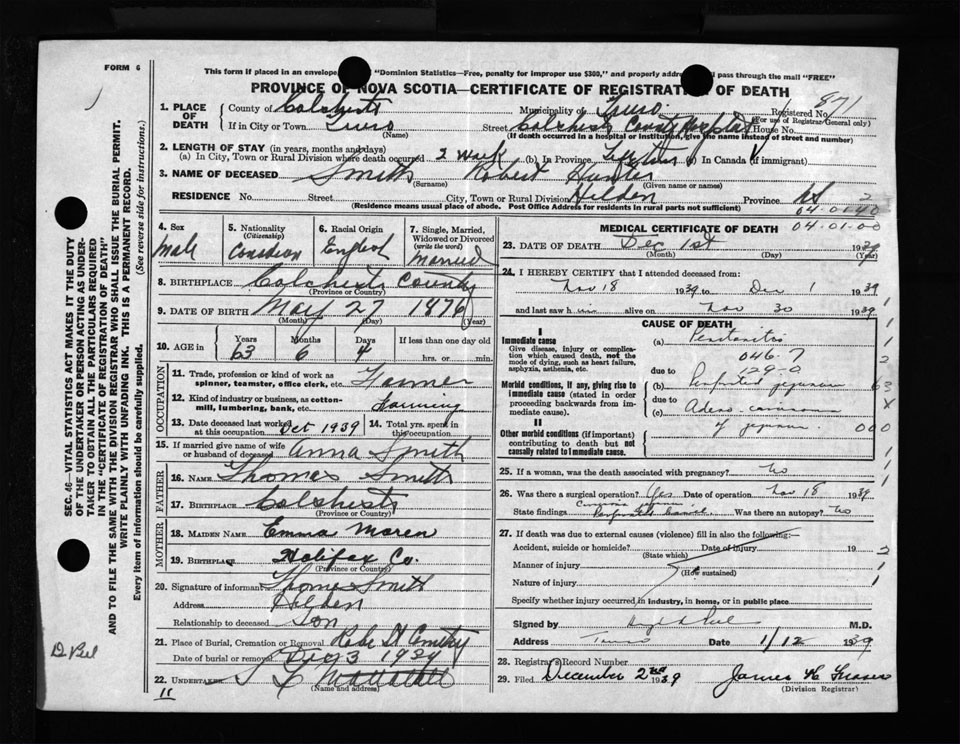 FORM 6
This form if placed in an envelope "Dominion Statistics—Free, penalty for improper use $300," and properly addressed pass through the mail "FREE"
PROVINCE OF NOVA SCOTIA—CERTIFICATE OF REGISTRATION OF DEATH
1. PLACE OF DEATH
County of Colchester Municipality of Truro Registered No. 871
(For use of Registrar General only)
If in City or Town Truro (Name) Street Colchester County Hospital House No.
(If death occurred in a hospital or institution, give the name instead of street and number)
2. LENGTH OF STAY (in years, months and days)
(a) In City, Town or Rural Division where death occurred 2 week (b) In Province Lifetime (c) In Canada (if immigrant)
3. NAME OF DECEASED Smith Robert Hunter
(Surname) (Given name or names)
RESIDENCE No. Street City, Town or Rural Division Hilden Province NS 2
(Residence means usual place of abode. Post Office Address for residents in rural parts not sufficient)
04-01-40
04-01-00
4. Sex Male
5. Nationality (Citizenship) Canadian
6. Racial Origin English
7. Single, Married, Widowed or Divorced (write the word) Married
8. BIRTHPLACE Colchester County
(Province or Country)
9. DATE OF BIRTH May 27 1876
(Month) (Day) (Year)
10. AGE in Years 63 Months 6 Days 4 If less than one day old hrs. or min.
OCCUPATION
11. Trade, profession or kind of work as spinner, teamster, office clerk, etc. Farmer
12. Kind of industry or business, as cotton-mill, lumbering, bank, etc. Farming
13. Date deceased last worked at this occupation Oct 1939 14. Total yrs. spent in this occupation
15. If married give name of wife or husband of deceased Anna Smith
FATHER
16. NAME Thomas Smith
17. BIRTHPLACE Colchester
(Province or Country)
MOTHER
18. MAIDEN NAME Emma Moren
19. BIRTHPLACE Halifax Co.
(Province or Country)
20. Signature of informant Thomas Smith
Address Hilden
Relationship to deceased Son
21. Place of Burial, Cremation or Removal Cemetery
Date of burial or removal Dec 3 1939
22. UNDERTAKER
(Name and address)
11
MEDICAL CERTIFICATE OF DEATH
23. DATE OF DEATH Dec 1st 1939
(Month) (Day) (Year)
24. I HEREBY CERTIFY that I attended deceased from:
Nov 18 1939 to Dec 1 1939
and last saw him alive on Nov 30 1939
CAUSE OF DEATH
I
Immediate cause
Give disease, injury or complication which caused death, not the mode of dying, such as heart failure, asphyxia, asthenia, etc.
(a) Peritonitis
046.7
due to 129-0
Morbid conditions, if any, giving rise to immediate cause (stated in order proceeding backwards from immediate cause).
(b) Perforated jejunum
due to
(c) Adeno-carcinoma
of jejunum 000
II
Other morbid conditions (if important) contributing to death but not causally related to immediate cause.
25. If a woman, was the death associated with pregnancy? No
26. Was there a surgical operation? Yes Date of operation Nov 18 1939
State findings Perforated Was there an autopsy? No
27. If death was due to external causes (violence) fill in also the following:—
Accident, suicide or homicide? Date of injury 19
(State which)
Manner of injury
(How sustained)
Nature of injury
Specify whether injury occurred in industry, in home, or in public place
Signed by M.D.
Address Truro Date 1/12 1939
28. Registrar's Record Number
29. Filed December 2nd 1939 James H Fraser
(Division Registrar)
SEC. 46—VITAL STATISTICS ACT MAKES IT THE DUTY
OF THE UNDERTAKER OR PERSON ACTING AS UNDERTAKER TO OBTAIN ALL THE PARTICULARS REQUIRED
IN THE "CERTIFICATE OF REGISTRATION OF DEATH"
AND TO FILE THE SAME WITH THE DIVISION REGISTRAR WHO SHALL ISSUE THE BURIAL PERMIT.
WRITE PLAINLY WITH UNFADING INK. THIS IS A PERMANENT RECORD.
Every item of information should be carefully supplied. (See reverse side for instructions.)